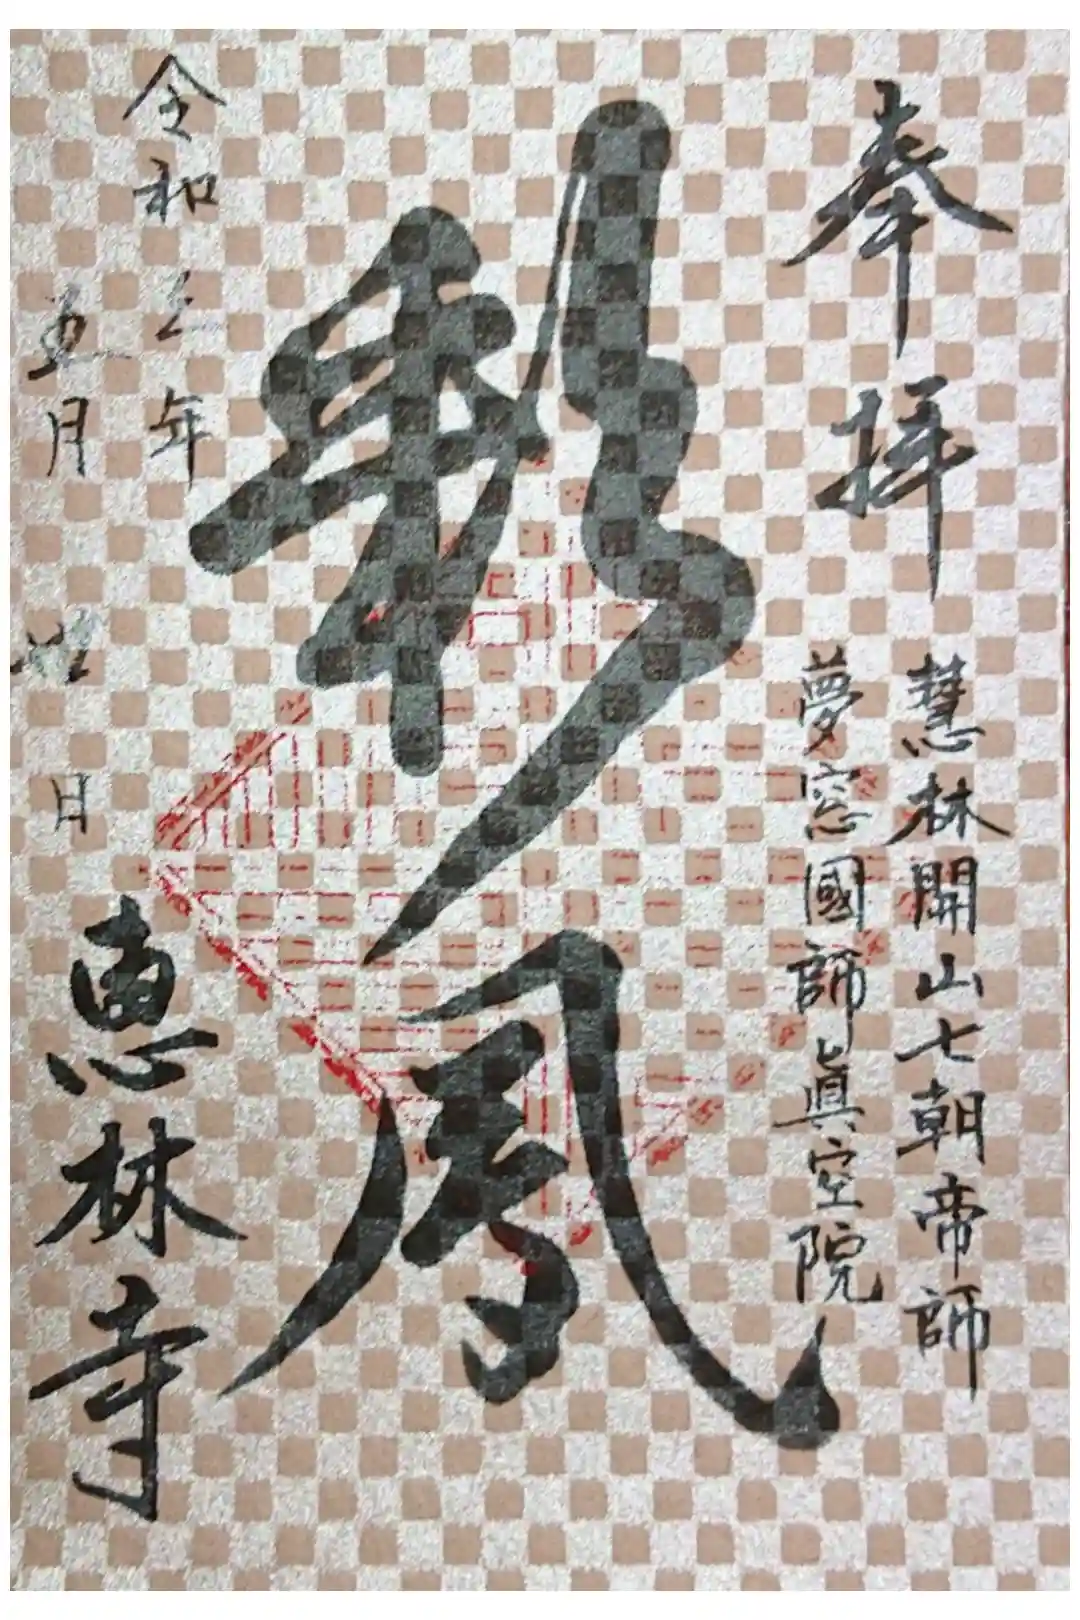 奉拝
慧林開山七朝帝師
夢窓國師眞空院
令和三年
五月 日
恵林寺